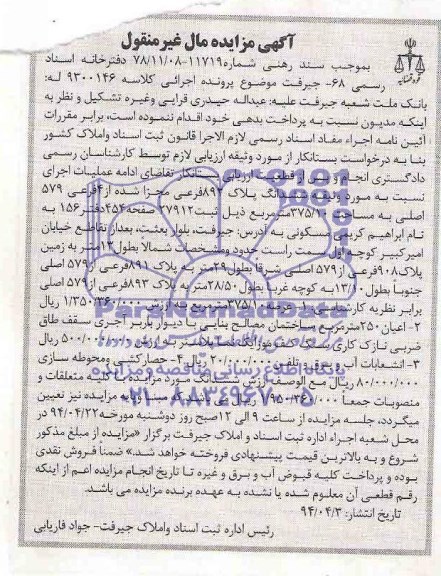 آگهی مزایده مال غیرمنقول
بموجب سند رهنی شماره ۱۱۷۱۹-۷۸/۱۱/۰۸ دفترخانه اسناد
رسمی ۶۸- جیرفت موضوع پرونده اجرائی کلاسه ۹۳۰۰۱۴۶ له:
بانک ملت شعبه جیرفت علیه: عبداله حیدری قرایی وغیره تشکیل و نظر به
اینکه مدیون نسبت به پرداخت بدهی خود اقدام ننموده است، برابر مقررات
آئین نامه اجراء مفاد اسناد رسمی لازم الاجرا قانون ثبت اسناد واملاک کشور
بنا به درخواست بستانکار از مورد وثیقه ارزیابی لازم توسط کارشناسان رسمی
دادگستری انجام و پس از قطعیت ارزیابی بستانکار تقاضای ادامه عملیات اجرای
نسبت به مورد وثیقه ششدانگ پلاک ۸۹۲فرعی مجزا شده از۴فرعی ۵۷۹
اصلی به مساحت ۳۷۵/۱۰مترمربع ذیل ثبت۷۹۱۲ صفحه۴۵۴دفتر۱۵۶ به
نام ابراهیم کریمی مسکونی به آدرس: جیرفت، بلوار بعثت، بعداز تقاطع خیابان
امیرکبیر کوچه اول سمت راست حدود ومشخصات شمالا بطول۱۳متر به زمین
پلاک۹۰۸فرعی از۵۷۹ اصلی شرقا بطول۲۹متر به پلاک ۸۹۱فرعی از۵۷۹ اصلی
جنوبا بطول ۱۳/۱۰به کوچه غربا بطول ۲۸/۵۰ به پلاک ۸۹۳ فرعی از۵۷۹ اصلی
برابر نظریه کارشناسی ۱- عرصه ۳۷۵/۱۰مترمربع به ارزش ۱/۳۵۰/۳۶۰/۰۰۰ ریال
۲- اعیان ۲۵۰مترمربع ساختمان مصالح بنایی با دیوار باربر آجری سقف طاق
ضربی نازک کاری کف موزائیک به ارزش ۵۰۰/۰۰۰/۰۰۰ ریال
۳- انشعابات آب و برق و تلفن ۲۰/۰۰۰/۰۰۰ ریال ۴- حصارکشی ومحوطه سازی
۸۰/۰۰۰/۰۰۰ ریال مع الوصف ارزش ششدانگ مورد مزایده با کلیه متعلقات و
منصوبات جمعا ۱/۹۵۰/۳۶۰/۰۰۰ ریال پایه مزایده نیز تعیین
میگردد، جلسه مزایده از ساعت ۹ الی ۱۲صبح روز دوشنبه مورخه۹۴/۰۴/۲۲ در
محل شعبه اجراء اداره ثبت اسناد و املاک جیرفت برگزار «مزایده از مبلغ مذکور
شروع و به بالاترین قیمت پیشنهادی فروخته خواهد شد» ضمنا فروش نقدی
بوده و پرداخت کلیه قبوض آب و برق و غیره تا تاریخ انجام مزایده اعم از اینکه
رقم قطعی آن معلوم شده یا نشده به عهده برنده مزایده می باشد.
تاریخ انتشار: ۹۴/۰۴/۳
رئیس اداره ثبت اسناد واملاک جیرفت- جواد فاریابی
ParsNamadData
پایگاه اطلاع رسانی مناقصه و مزایده
۰۲۱-۸۸۳۴۹۶۷۰-۵